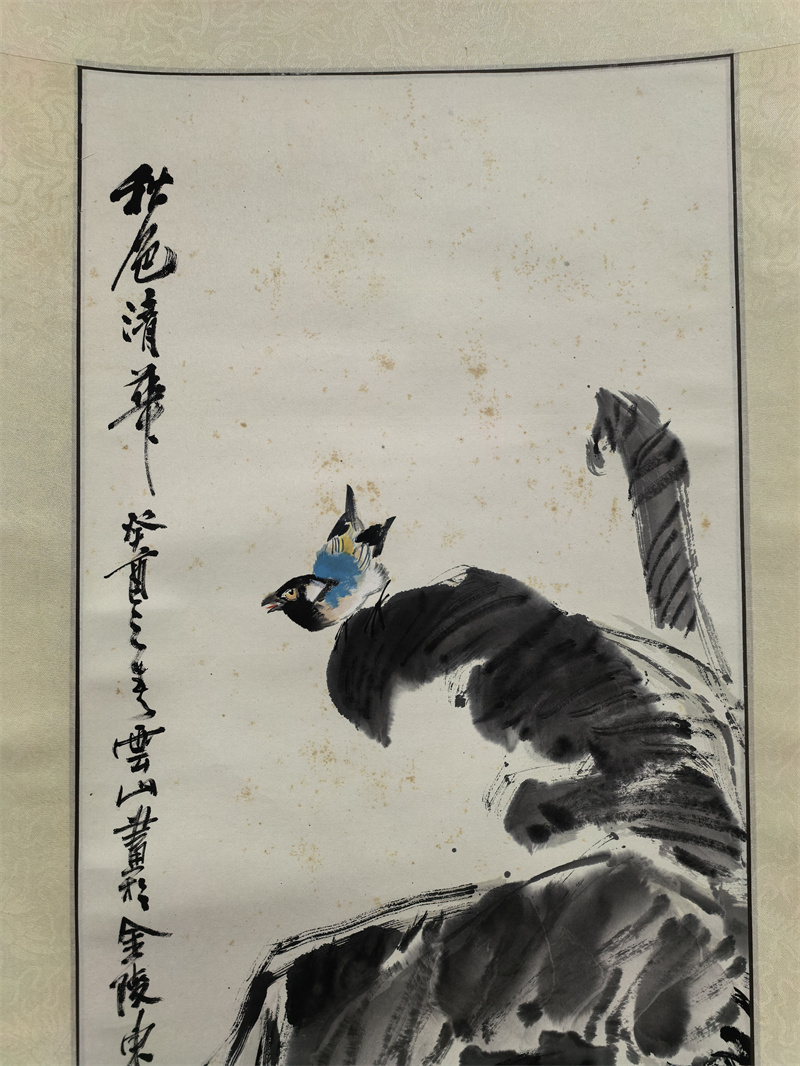 秋色清華 癸亥之春雲山畫於金陵東